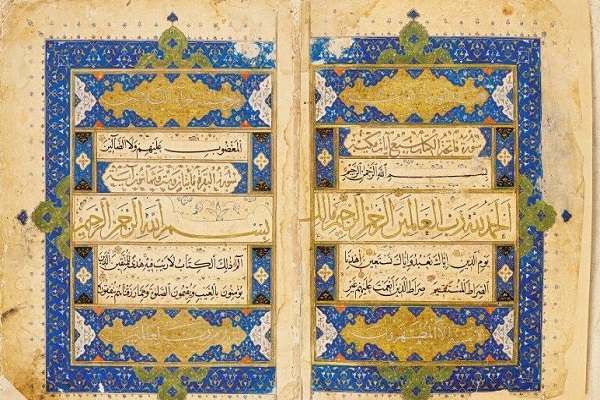 سورة فاتحة الكتاب سبع آيات مكية
بسم الله الرحمن الرحيم
الحمد لله رب العالمين الرحمن الرحيم مالك
يوم الدين اياك نعبد واياك نستعين اهدنا
الصراط المستقيم صراط الذين انعمت عليهم غير
الا المطهرون
المغضوب عليهم ولا الضالين
سورة البقرة مائتان آية
بسم الله الرحمن الرحيم
الم ذلك الكتاب لا ريب فيه هدى للمتقين الذين
يؤمنون بالغيب ويقيمون الصلوة ومما رزقناهم ينفقون
رب العالمين